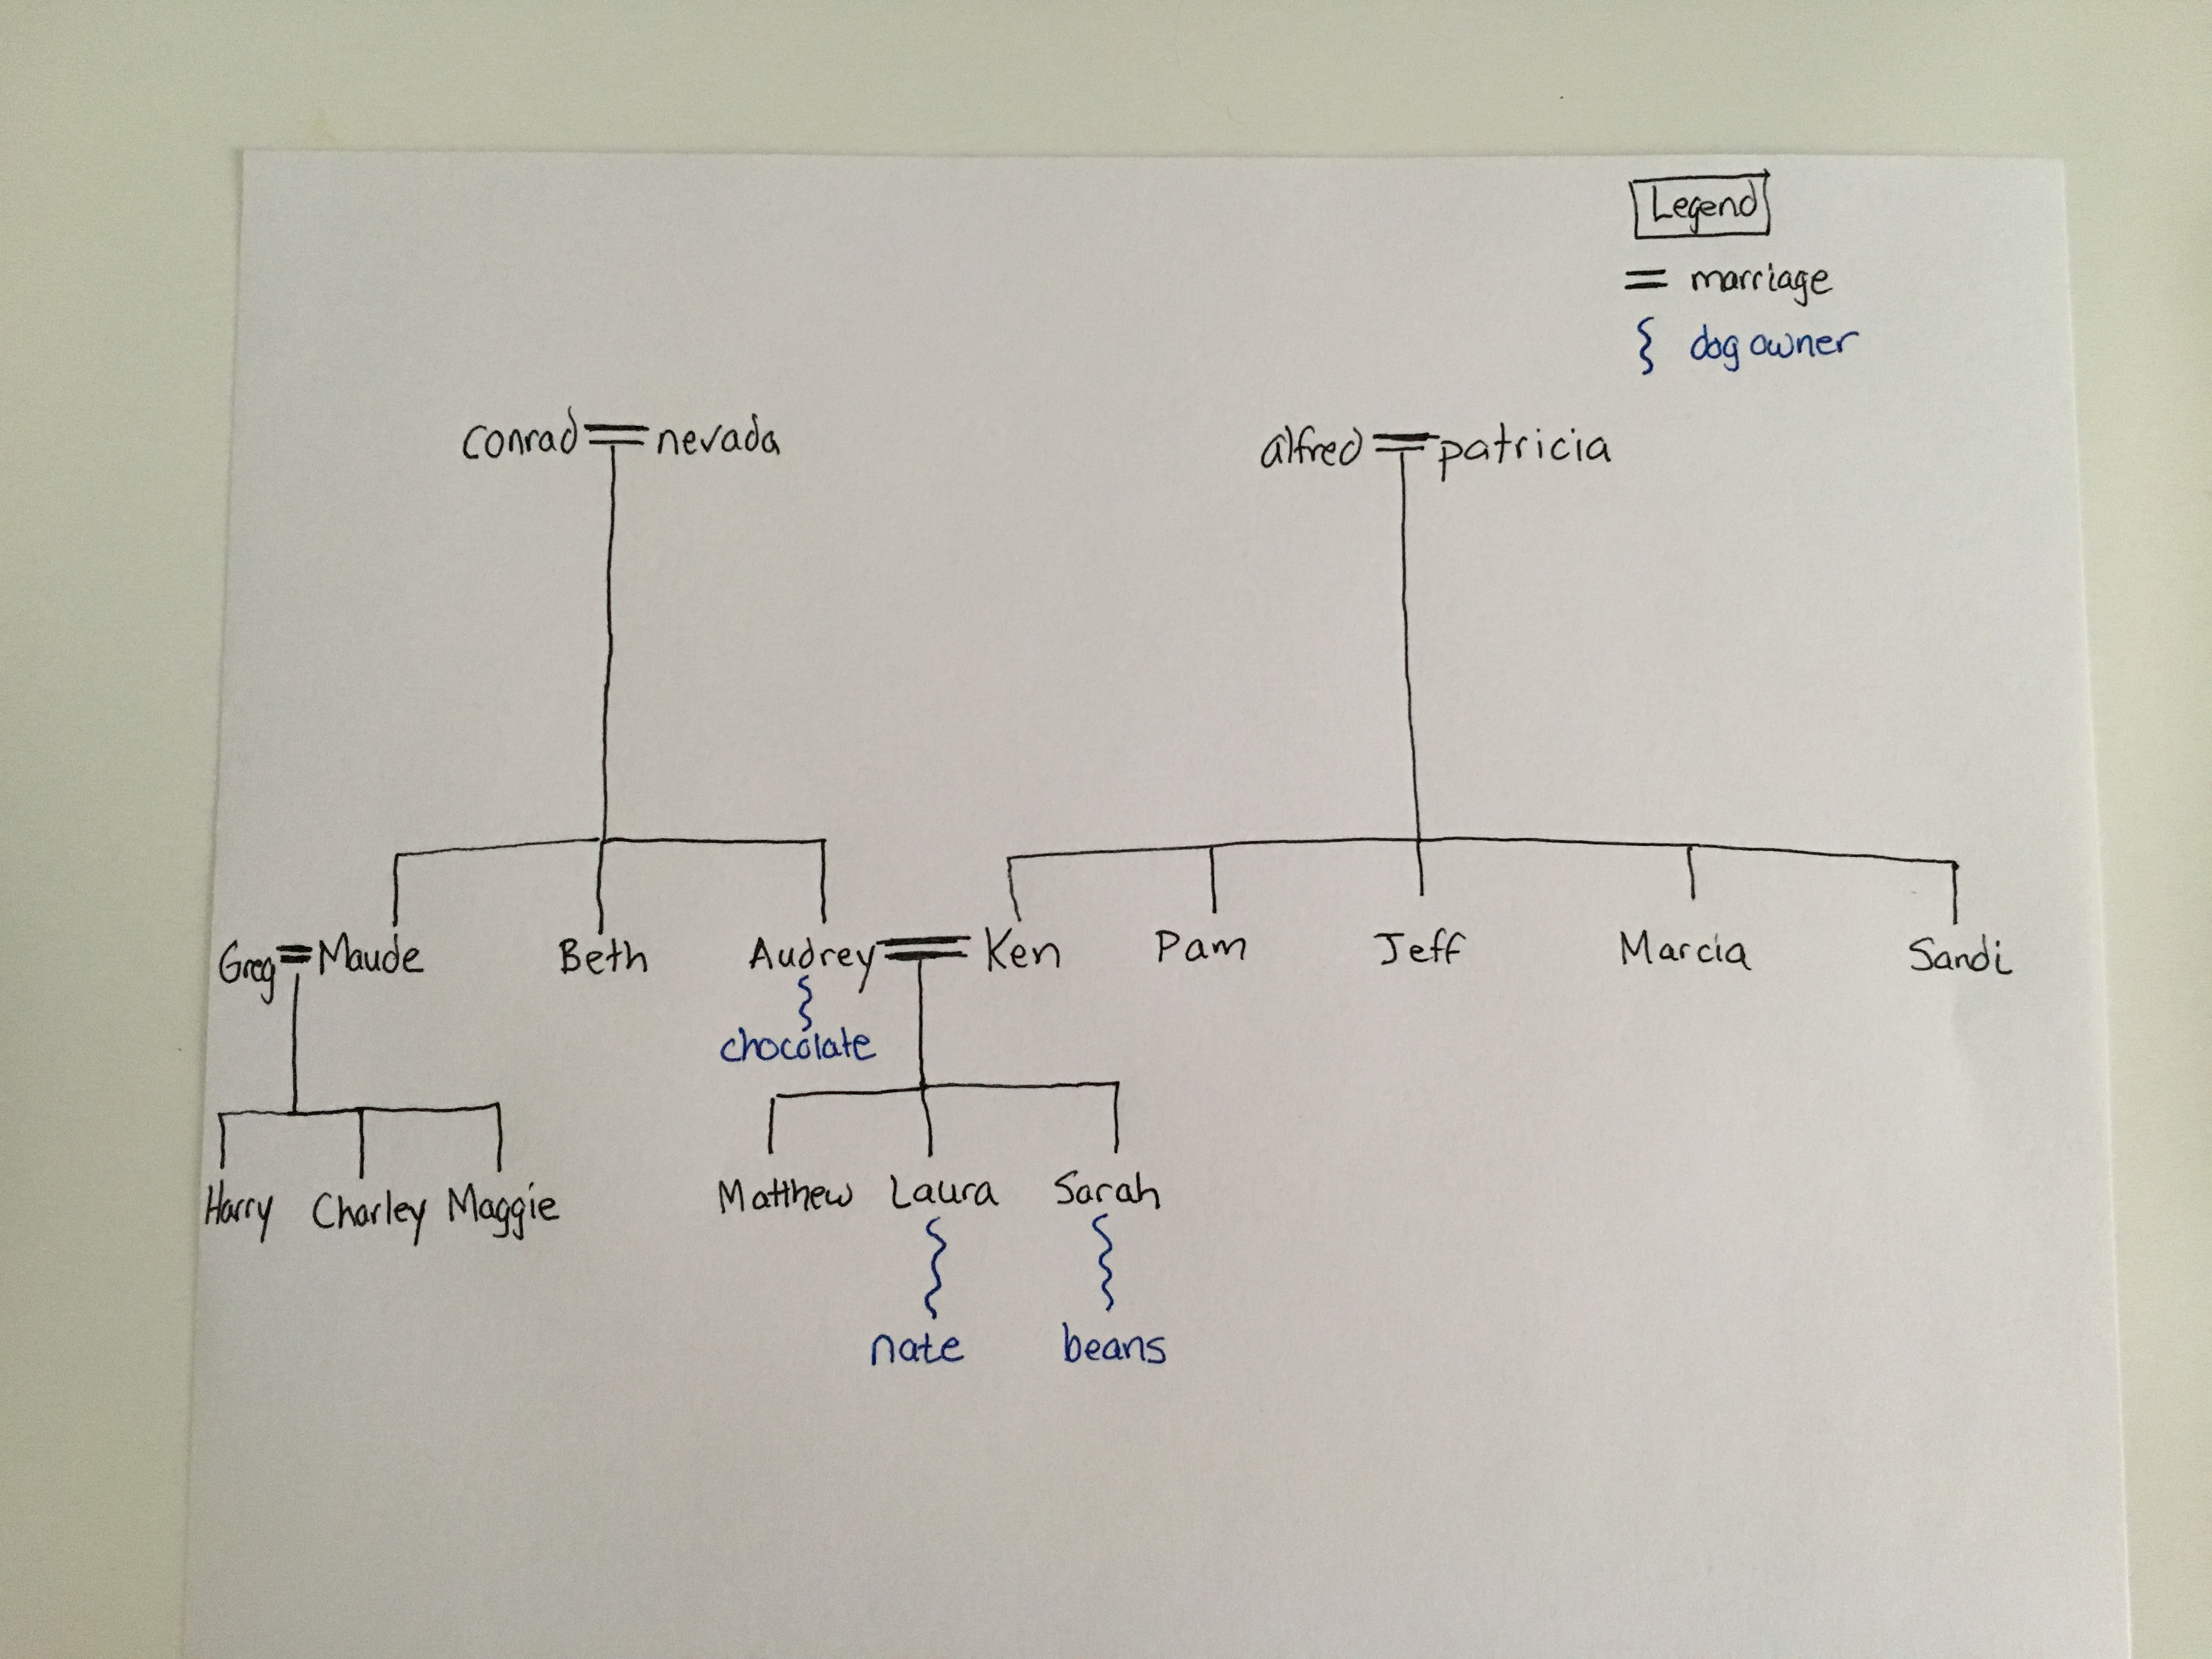 Legend
= marriage
dog owner
conrad = nevada
alfred = patricia
Greg = Maude Beth Audrey = Ken Pam Jeff Marcia Sandi
chocolate
Harry Charley Maggie Matthew Laura Sarah
nate beans